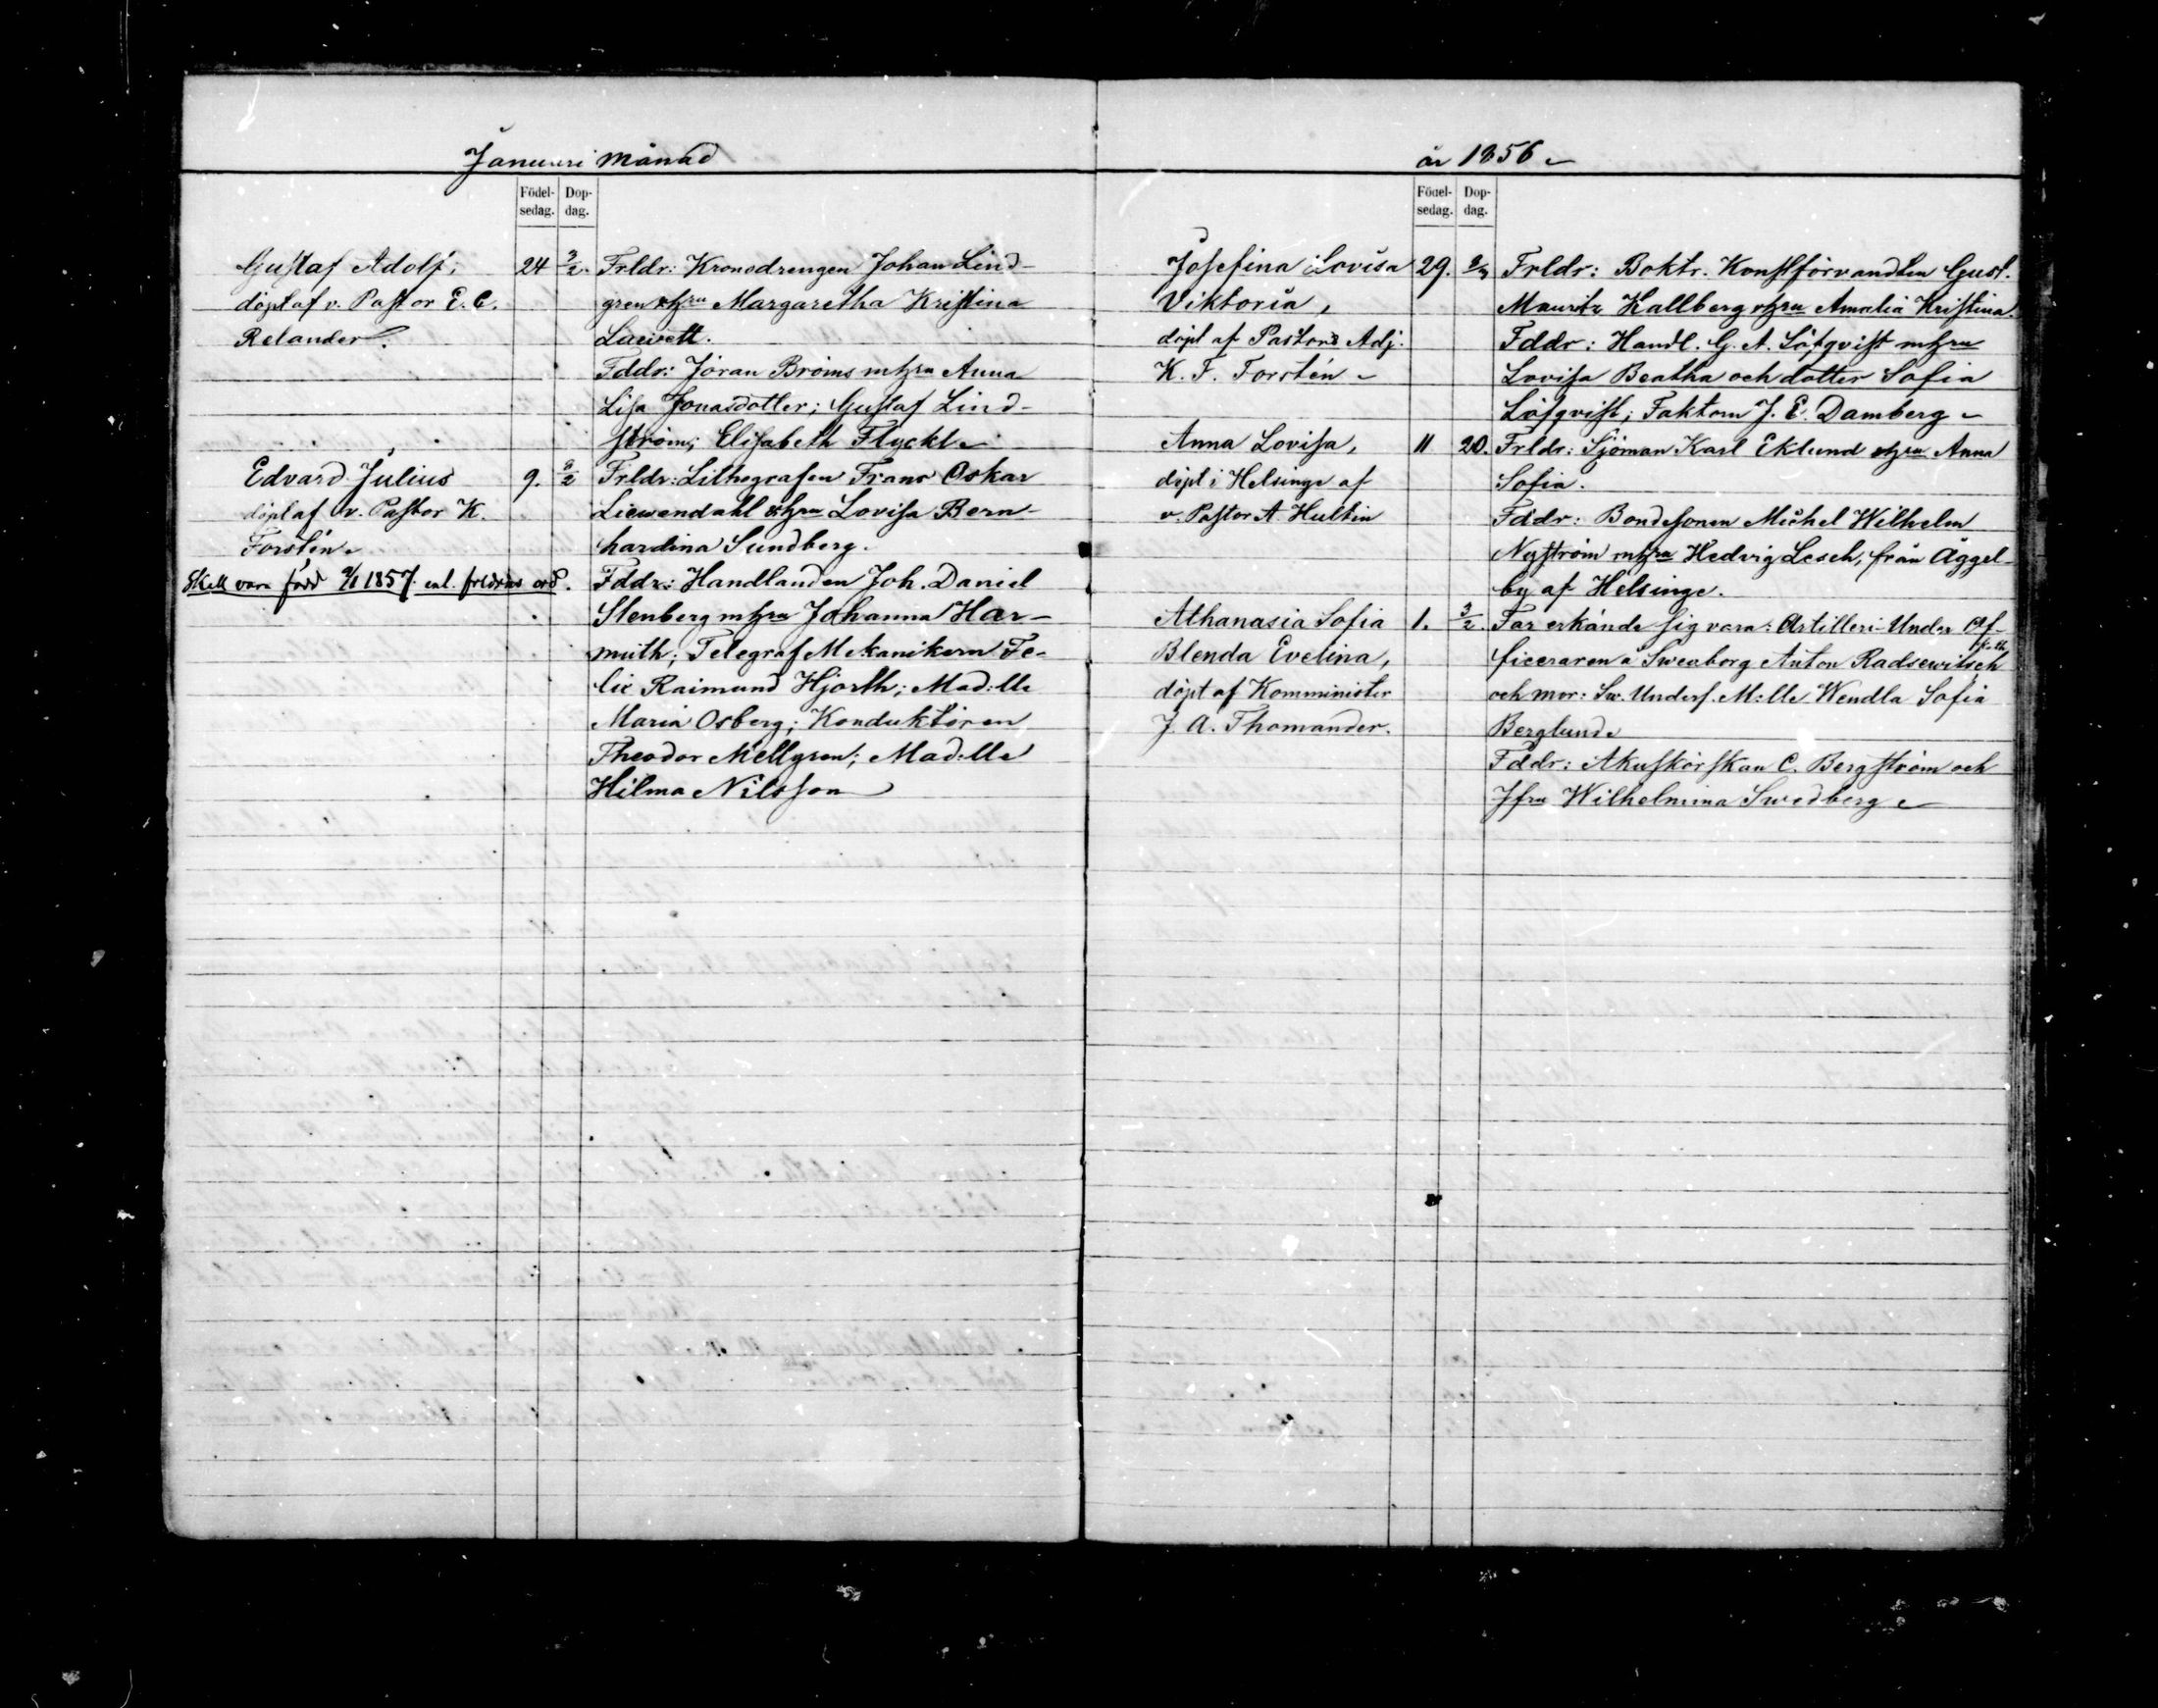 Januari månad
Födel-
sedag.
Dop-
dag.
Gustaf Adolf,
döpt af v. Pastor E. C.
Relander.
24
3/2.
Frldr: Kronodrengen Johan Lind-
gren o hru Margaretha Kristina
Lawett.
Fddr: Jöran Broms m hru Anna
Lisa Jonasdotter; Gustaf Lind-
ström; Elisabeth Flyckt
Edvard Julius
döpt af v. Pastor K.
Forstén
Skall vara född 9/1 1857 enl. frldrns ord.
9.
3/2
Frldr: Lithografen Frans Oskar
Liewendahl o hru Lovisa Bern-
hardina Sundberg.
Fddr: Handlanden Joh. Daniel
Stenberg m hru Johanna Har-
muth; Telegraf Mekanikern Fe-
lix Raimund Hjorth; Mad:lle
Maria Osberg; Konduktören
Theodor Mellgren; Mad:lle
Hilma Nilsson
år 1856
Födel-
sedag.
Dop-
dag.
Josefina Lovisa
Viktoria,
döpt af Pastors Adj.
K. F. Forstén
29.
Frldr: Boktr. Konstförvandten Gust.
Mauritz Hallberg o hru Amalia Kristina.
Fddr: Handl. G. A. Löfqvist m hru
Lovisa Beatha och dotter Sofia
Löfqvist; Faktorn J. E. Damberg
Anna Lovisa,
döpt i Helsinge af
v. Pastor A. Hultin
11
20.
Frldr: Sjöman Karl Eklund o hru Anna
Sofia.
Fddr: Bondesonen Michel Wilhelm
Nyström m hru Hedvig Lesch, från Åggel-
by af Helsinge.
Athanasia Sofia
Blenda Evelina,
döpt af Komminister
J. A. Thomander.
1.
3/2.
Far erkände sig vara: Artilleri-Under Of-
ficeraren å Sweaborg Anton Radsewitsch
och mor: Sw. Unders. M:lle Wendla Sofia
Berglund
Fddr: Akuskörskan C. Bergström och
Jfru Wilhelmina Swedberg